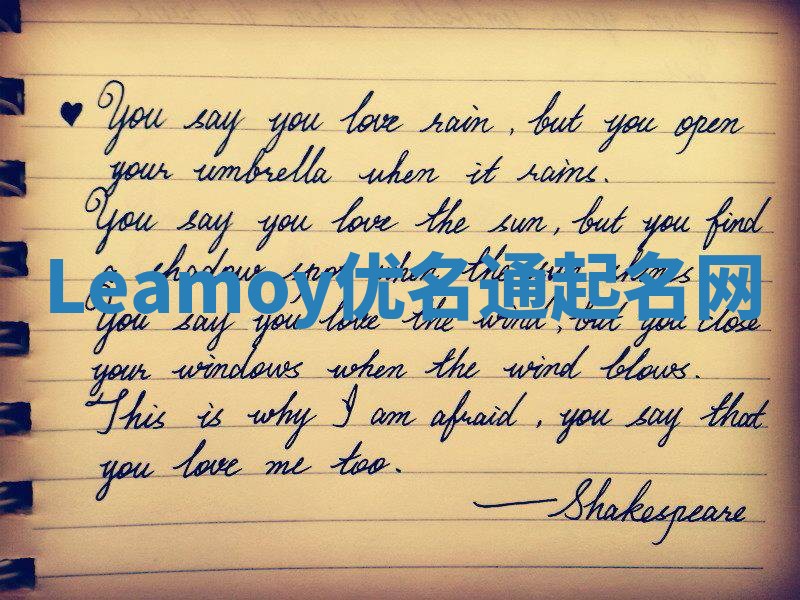 ♥ You say you love rain, but you open
your umbrella when it rains.
You say you love the sun, but you find
a shadow spot when the sun shines
Leamoy优名通起名网
You say you love the wind, but you close
your windows when the wind blows.
This is why I am afraid, you say that
you love me too.
—Shakespeare